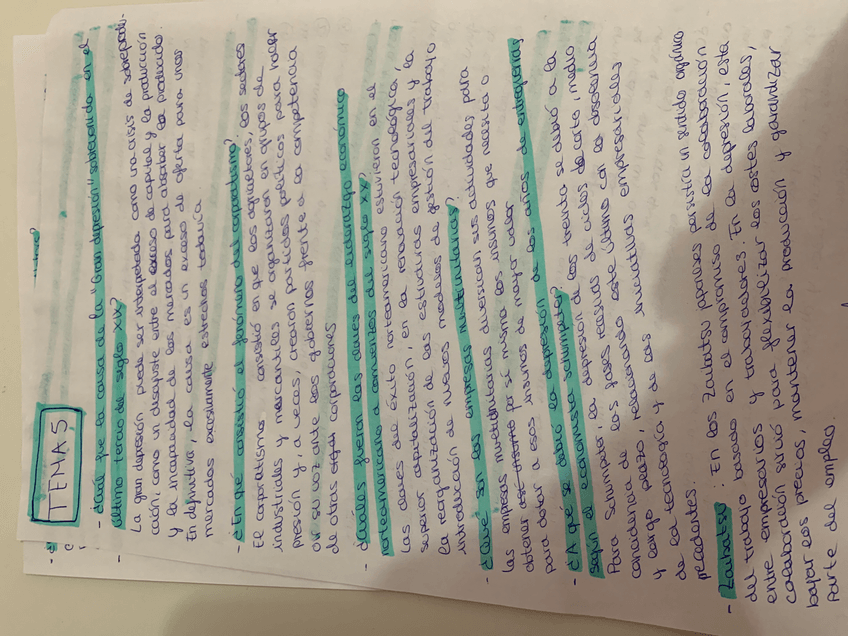 TEMA 5
- ¿Cuál fue la causa de la "Gran depresión" sobrevenida en el
último tercio del siglo XIX?
La gran depresión puede ser interpretada como una crisis de sobreproduc-
ción, como un desajuste entre el exceso de capital y la producción
y la incapacidad de los mercados para absorber lo producido.
En definitiva, la causa es un exceso de oferta para unos
mercados excesivamente estrechos todavía
- ¿En qué consistió el fenómeno del corporatismo?
El corporatismo consistió en que los agricultores, los sectores
industriales y mercantiles se organizaron en grupos de
presión y, a veces, crearon partidos políticos para hacer
oír su voz ante los gobiernos frente a la competencia
de otras corporaciones
- ¿Cuáles fueron las claves del liderazgo económico
norteamericano a comienzos del siglo XX?
Las claves del éxito norteamericano estuvieron en el
superior capitalización, en la renovación tecnológica,
la reorganización de las estructuras empresariales y la
introducción de nuevos modelos de gestión del trabajo
- ¿Qué son las empresas multiunitarias?
Las empresas multiunitarias diversifican sus actividades para
obtener por sí misma los insumos que necesita o
para dotar a esos insumos de mayor valor
- ¿A qué se debió la depresión de los años de entreguerras
según el economista Schumpeter?
Para Schumpeter, la depresión de los treinta se debió a la
coincidencia de las fases recesivas de ciclos de corto, medio
y largo plazo, relacionando este último con la obsolencia
de la tecnología y de las iniciativas empresariales
precedentes.
- Zaibatsu: En los Zaibatsu japoneses persistía un sentido orgánico
del trabajo basado en el compromiso de la colaboración
entre empresarios y trabajadores. En la depresión, esta
colaboración sirvió para flexibilizar los costes laborales,
bajar los precios, mantener la producción y garantizar
parte del empleo.